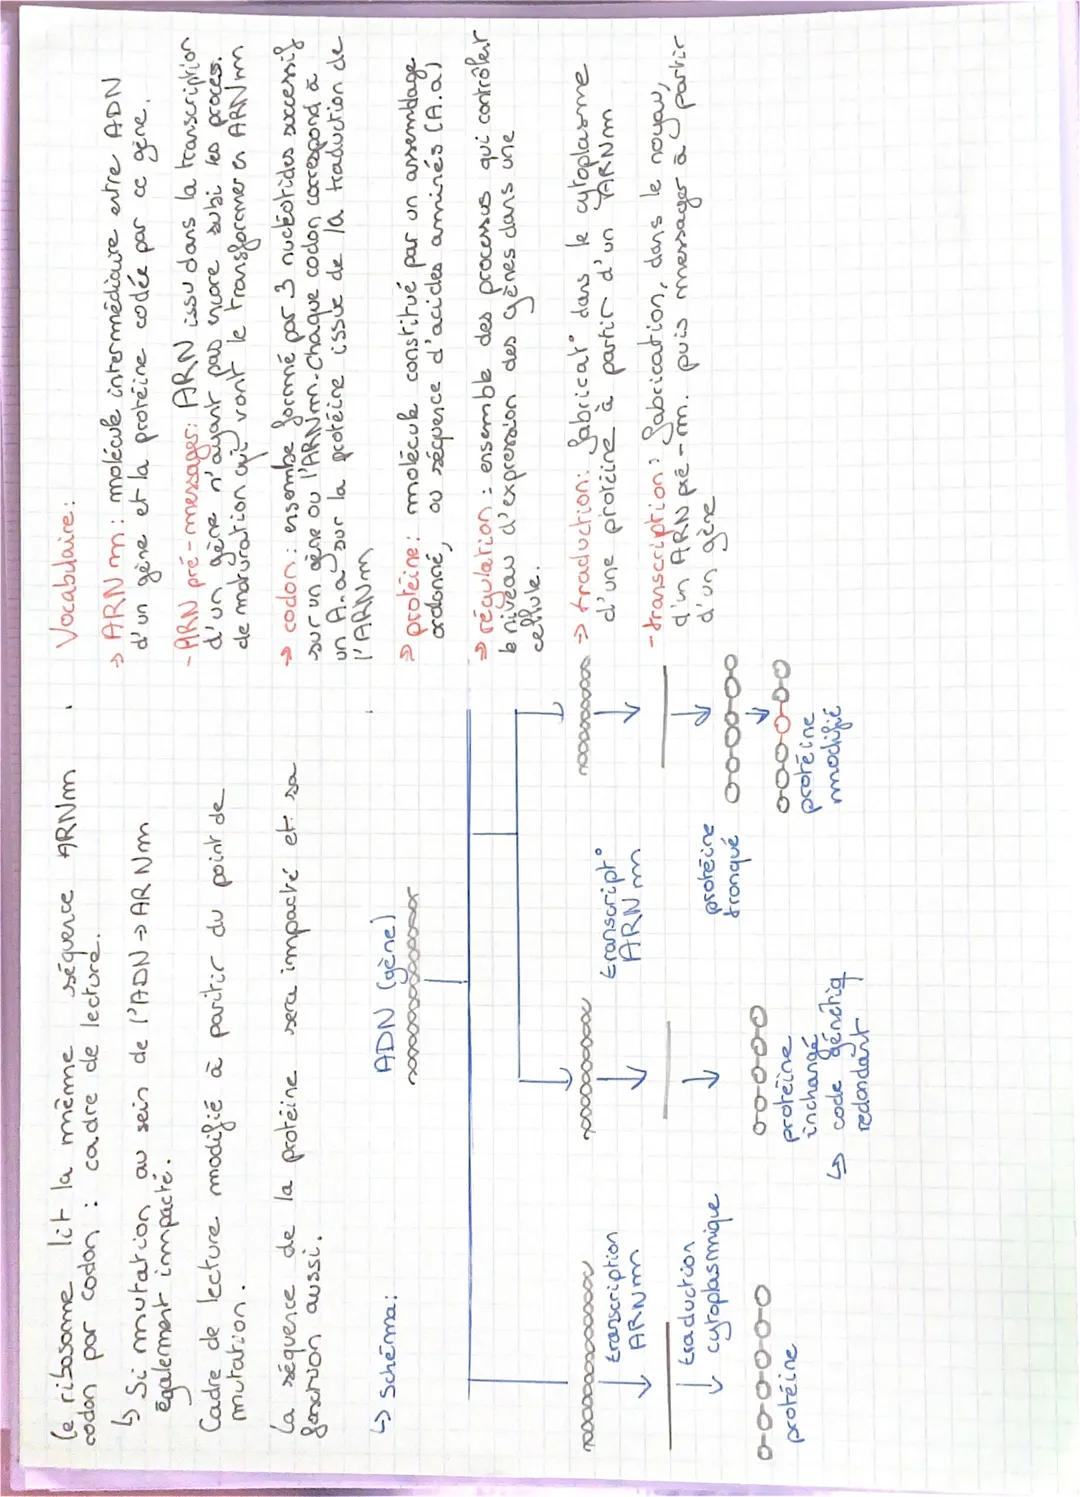 le ribosome lit la même séquence ARNm
codon par codon : cadre de lecture.
↳ Si mutation au sein de l'ADN → ARNm
également impacté.
Cadre de lecture modifié à partir du point de
mutation.
la séquence de la protéine sera impacté et sa
fonction aussi.
↳ schéma:
ADN (gène)
transcription
ARNm
traduction
cytoplasmique
protéine
protéine
inchangé
↳ code génétiq
redondant
transcript°
ARNm
protéine
tronqué
protéine
modifié
Vocabulaire:
→ ARNm: molécule intermédiaire entre ADN
d'un gène et la protéine codée par ce gène.
- ARN pré-messager: ARN issu dans la transcription
d'un gène n'ayant pas encore subi les proces.
de maturation qui vont le transformer en ARNm
→ codon: ensembe formé par 3 nucléotides successifs
sur un gène ou l'ARNm. Chaque codon correspond à
un A.a sur la protéine issue de la traduction de
l'ARNm
→ protéine: molécule constitué par un assemblage
ordonné, ou séquence d'acides aminés (A.a)
→ régulation: ensemble des processus qui contrôlent
le niveau d'expression des gènes dans une
cellule.
→ traduction: fabricat° dans le cytoplasme
d'une protéine à partir d'un ARNm
- transcription: fabrication, dans le noyau,
d'un ARN pré-m. puis messager à partir
d'un gène